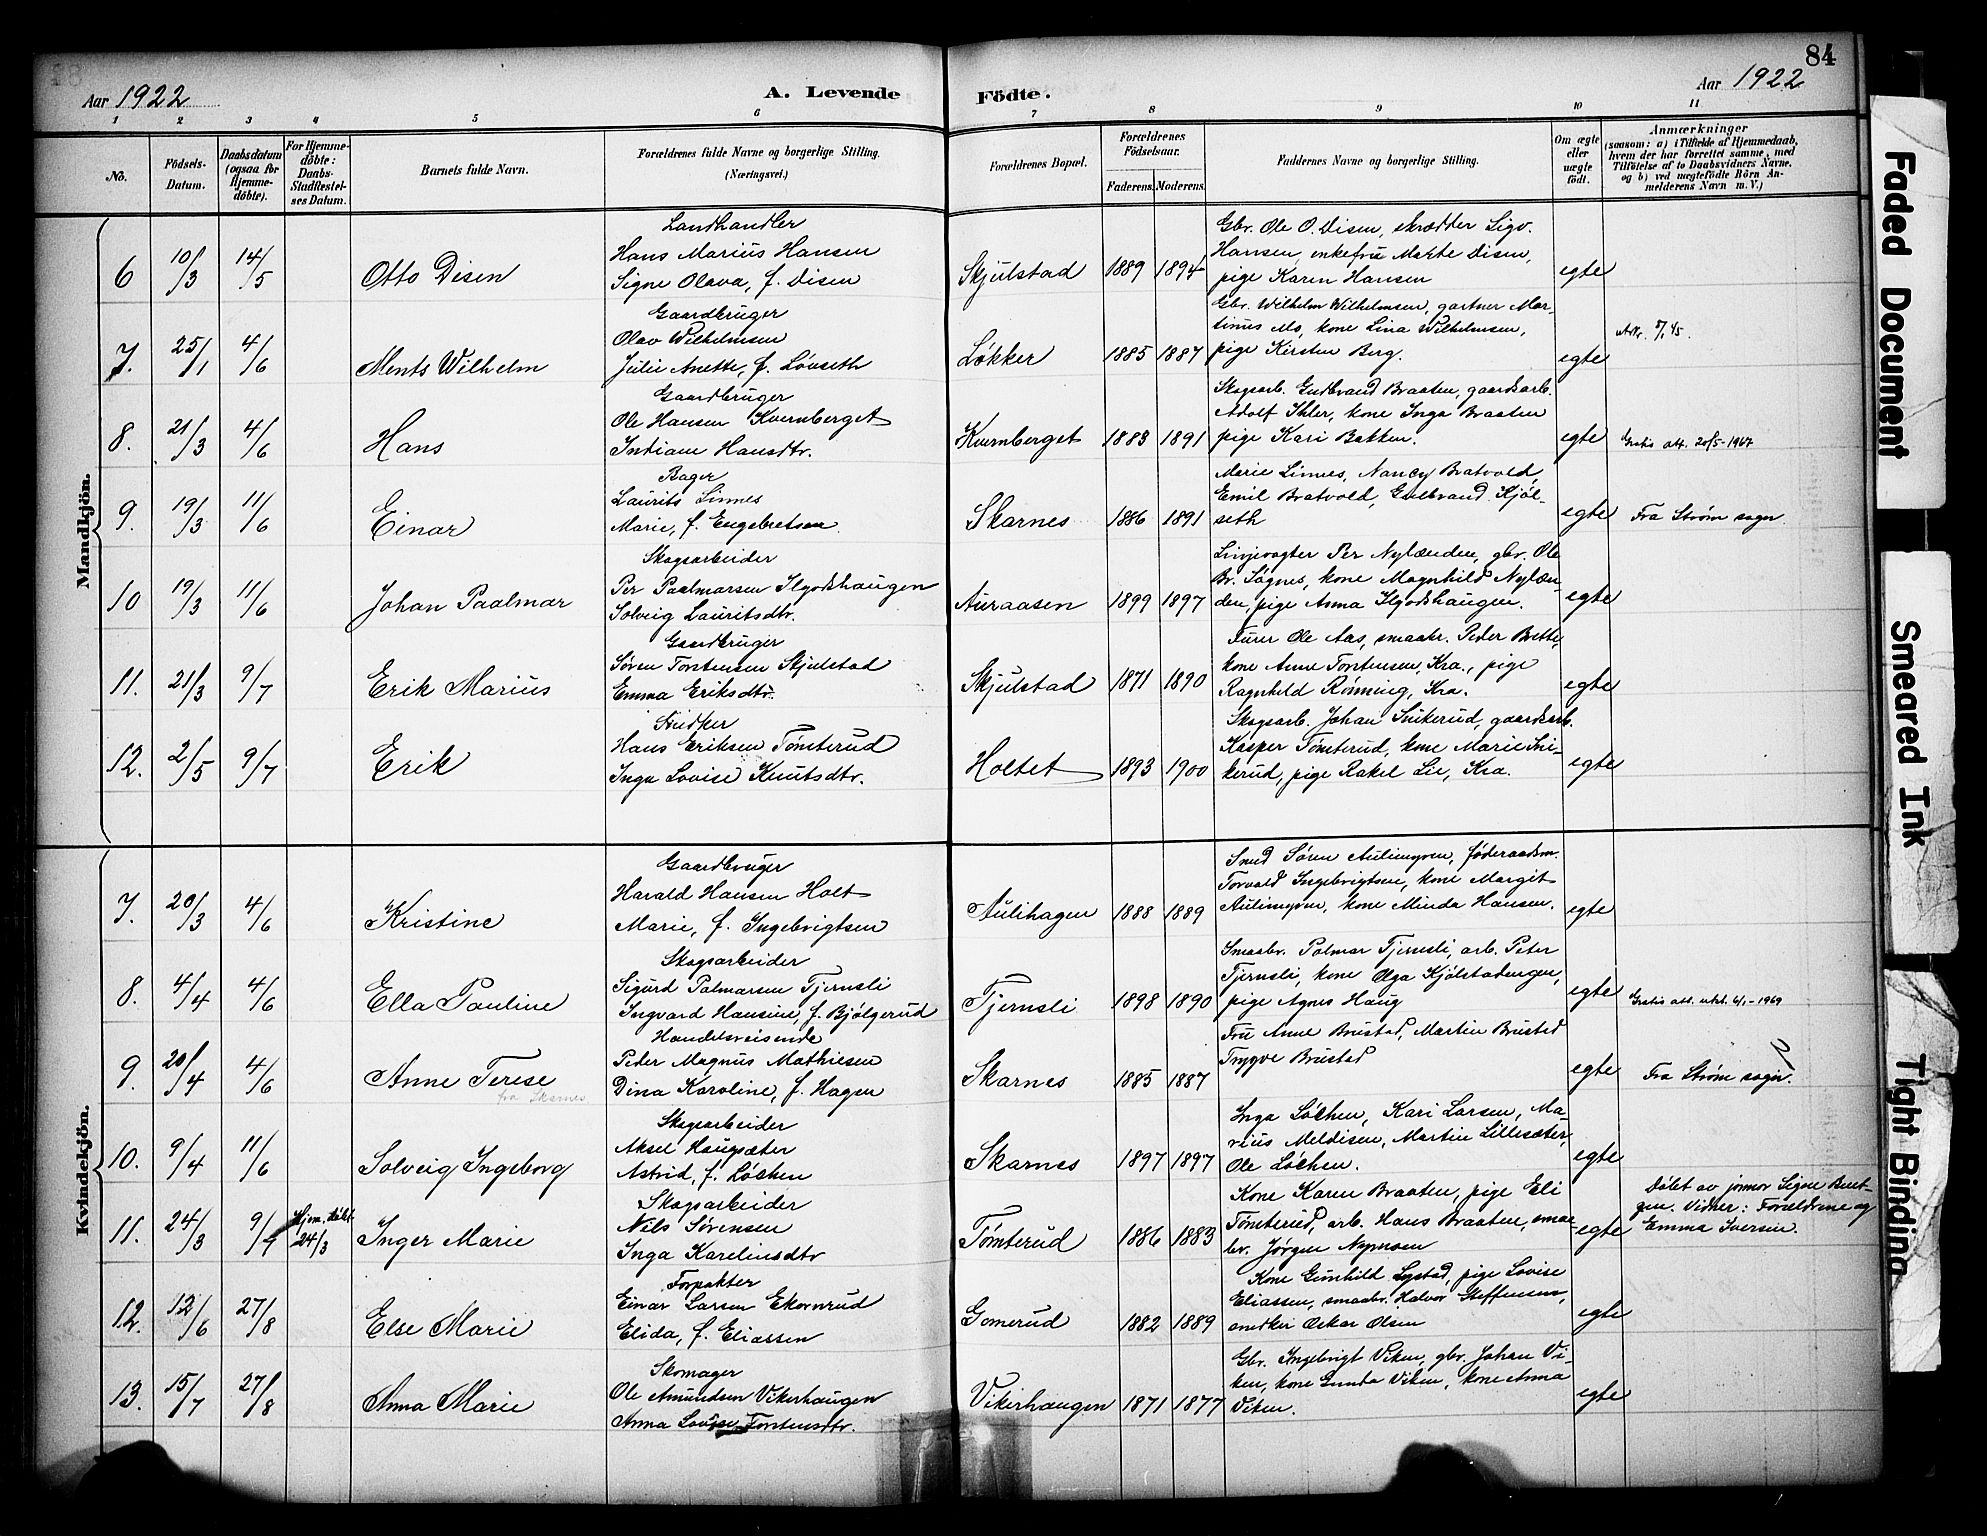 84
Aar 1922
A. Levende
Födte.
Aar 1922
1 2 3 4 5 6 7 8 9 10 11
No.
Födsels-
Datum.
Daabsdatum
(ogsaa for
Hjemme-
döbte).
For Hjemme-
döbte:
Daabs-
Stadfæstel-
ses Datum.
Barnets fulde Navn.
Forældrenes fulde Navne og borgerlige Stilling.
(Næringsvei.)
Forældrenes Bopæl.
Forældrenes
Födselsaar.
Faderens. Moderens.
Faddernes Navne og borgerlige Stilling.
Om ægte
eller
uægte
födt.
Anmærkninger
(saasom: a) i Tilfælde af Hjemmedaab,
hvem der har forrettet samme, med
Tilföielse af to Daabsvidners Navne,
og b) ved uægtefödte Börn An-
melderens Navn m.V.)
Mandkjön.
6 10/3 14/5 Otto Disen
Landhandler
Hans Marius Hansen
Signe Olava, f. Disen
Skjulstad 1889 1894
Gbr. Ole O. Disen, skrædder Sigv.
Hansen, enkefru Marte Disen,
pige Karen Hansen
egte
7. 25/1 4/6 Ments Wilhelm
Gaardbruger
Olav Wilhelmsen
Julie Anette, f. Løvseth
Løkker 1885 1887
Gbr. Wilhelm Wilhelmsen, gartner Mar-
tinus Mo, kone Lina Wilhelmsen,
pige Kirsten Berg.
egte
8. 21/3 4/6 Hans
Gaardbruger
Ole Hansen Kvernberget
Indiane Hansdtr.
Kvernberget 1883 1891
Skogsarb. Gudbrand Braaten, gaardsarb.
Adolf Ihler, kone Inga Braaten
pige Kari Bakken.
egte
Gratis att. 20/5-1967
9. 19/3 11/6 Einar
Bager
Laurits Linnes
Marie, f. Engebretsen
Skarnes 1886 1891
Marie Linnes, Nancy Bratvold,
Emil Bratvold, Gulbrand Kjøl-
seth
egte
Fra Strøm sogn.
10 19/3 11/6 Johan Paalmar
Skogsarbeider
Per Paalmarsen Ilgodshaugen
Solveig Lauritsdtr.
Auraasen 1899 1897
Linjevogter Per Nylænden, gbr. Ole
Br. Søgnes, kone Magnhild Nylæn-
den, pige Anna Ilgodshaugen.
egte
11. 21/3 9/7 Erik Marius
Gaardbruger
Søren Torstensen Skjulstad
Emma Eriksdtr.
Skjulstad 1871 1890
Furer Ole Aas, smaabr. Peder Bette,
kone Anne Torstensen, Kra., pige
Ragnhild Rønning, Kra.
egte
12. 2/5 9/7 Erik
Snidker
Hans Eriksen Tømterud
Inga Lovise Knutsdtr.
Holtet 1893 1900
Skogsarb. Johan Snikerud, gaardsarb.
Kasper Tømterud, kone Marie Sni-
kerud, pige Rakel Lie, Kra.
egte
Kvindekjön.
7. 20/3 4/6 Kristine
Gaardbruger
Harald Hansen Holt
Marie, f. Ingebrigtsen
Aulihagen 1888 1889
Smed Søren Aulimyren, føderaadsm.
Torvald Ingebrigtsen, kone Margit
Aulimyren, kone Minda Hansen.
egte
8. 4/4 4/6 Ella Pauline
Skogsarbeider
Sigurd Palmarsen Tjernsli
Ingvard Hansine, f. Bjølgerud
Tjernsli 1898 1890
Smaabr. Palmar Tjernsli, arb. Peter
Tjernsli, kone Olga Kjølstadengen,
pige Agnes Haug
egte
Gratis att. utst. 6/1-1969
9. 20/4 4/6 Anne Terese
fra Skarnes.
Handelsreisende
Peder Magnus Mathiesen
Dina Karoline, f. Hagen
Skarnes 1885 1887
Fru Anne Brustad, Martin Brustad
Trygve Brustad
egte
Fra Strøm sogn.
10. 9/4 11/6 Solveig Ingeborg
Skogsarbeider
Aksel Haugsæter
Astrid, f. Løchen
Skarnes 1897 1897
Inga Løchen, Kari Larsen, Ma-
rius Meldisen, Martin Lillesæter,
Ole Løchen.
egte
11. 24/3 9/7 Hjem.døbt
24/3 Inger Marie
Skogsarbeider
Nils Sørensen
Inga Karelinsdtr
Tømterud 1886 1883
Kone Karen Braaten, pige Eli
Tømterud, arb. Hans Braaten, smaa-
br. Jørgen Nymoen
egte
Døbt av jormor Signe Bent-
zen. Vidner: Forældrene og
Emma Iversen.
12. 12/6 27/8 Else Marie
Forpakter
Einar Larsen Ekornrud
Elida, f. Eliassen
Gomerud 1882 1889
Kone Gunhild Lystad, pige Lovise
Eliassen, smaabr. Halvor Steffensen,
snidker Oskar Olsen
egte
13. 15/7 27/8 Anna Marie
Skomager
Ole Amundsen Vikerhaugen
Anna Lovise Torstensdtr.
Vikerhaugen 1871 1877
Gbr. Ingebrigt Viken, gbr. Johan Vi-
ken, kone Gunda Viken, kone Anna
Viken.
egte
Faded Document
Smeared Ink
Tight Binding